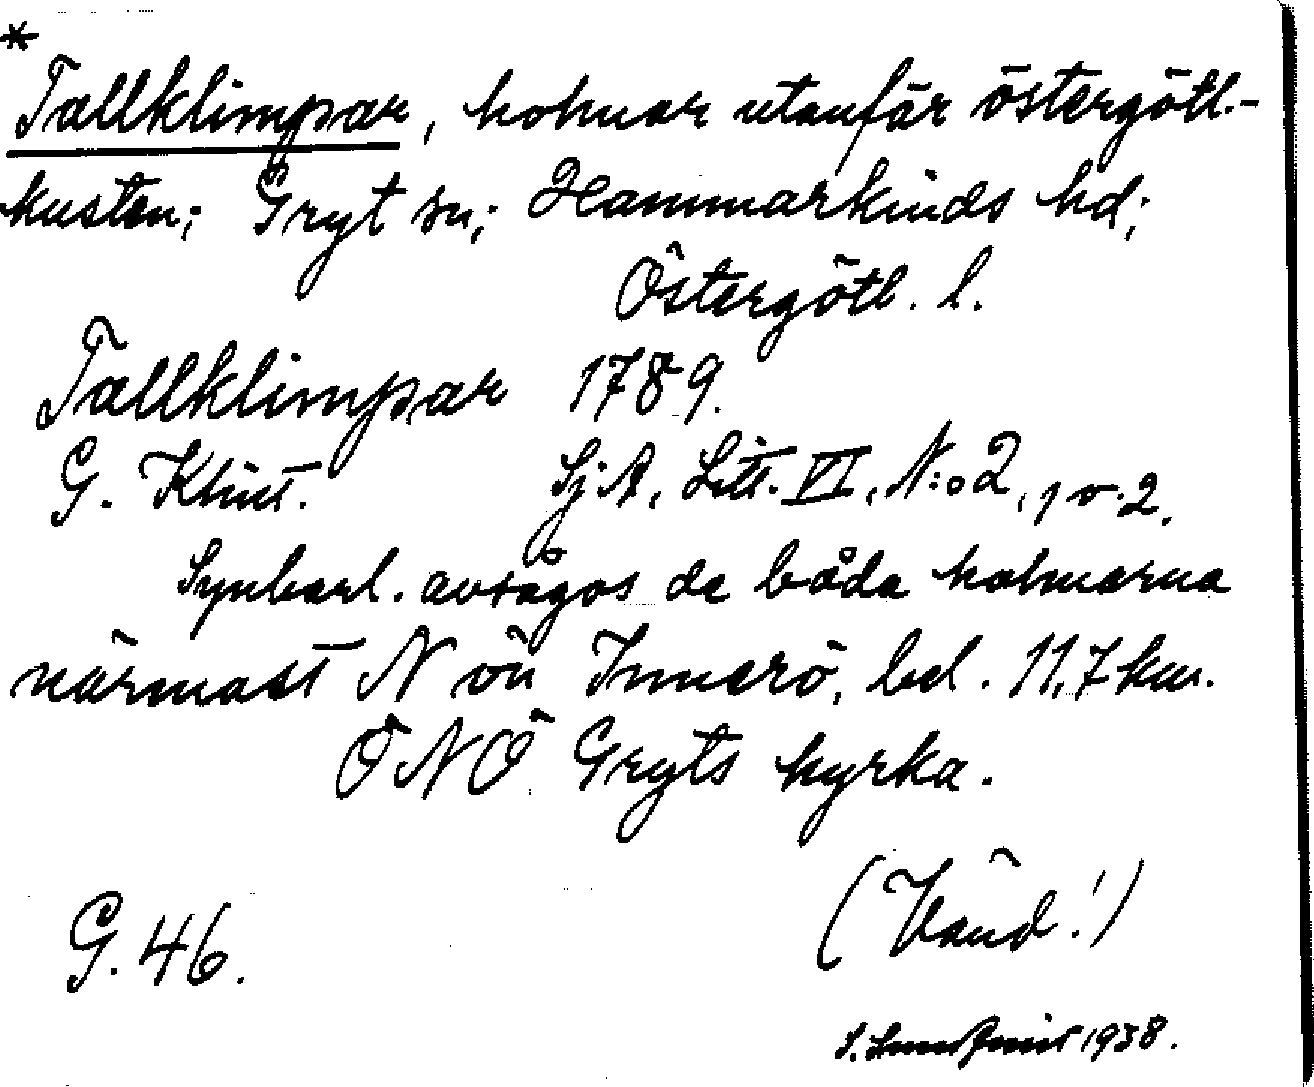 *
Tallklimpar, holmar utanför östergötl.-
kusten; Gryt sn; Hammarkinds hd;
Östergötl. l.
Tallklimpar 1789.
G. Klint. SjA, Litt. VI, N:o 2, 1 o. 2.
Synbarl. avsågos de båda holmarna
närmast N om Innerö, bel. 11,7 km.
ÖNÖ Gryts kyrka.
(Vänd!)
G. 46.
1938.